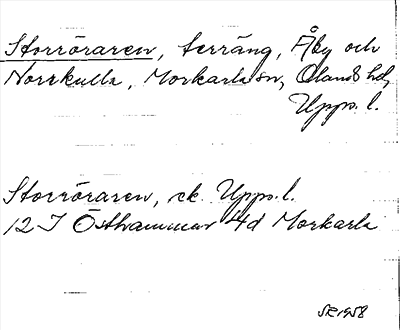 Storröraren, terräng, Åby och
Norrkulla, Morkarla sn, Olands hd,
Upps. l.
Storröraren, ek. Upps. l.
12 I Östhammar 4d Morkarla
SR 1958